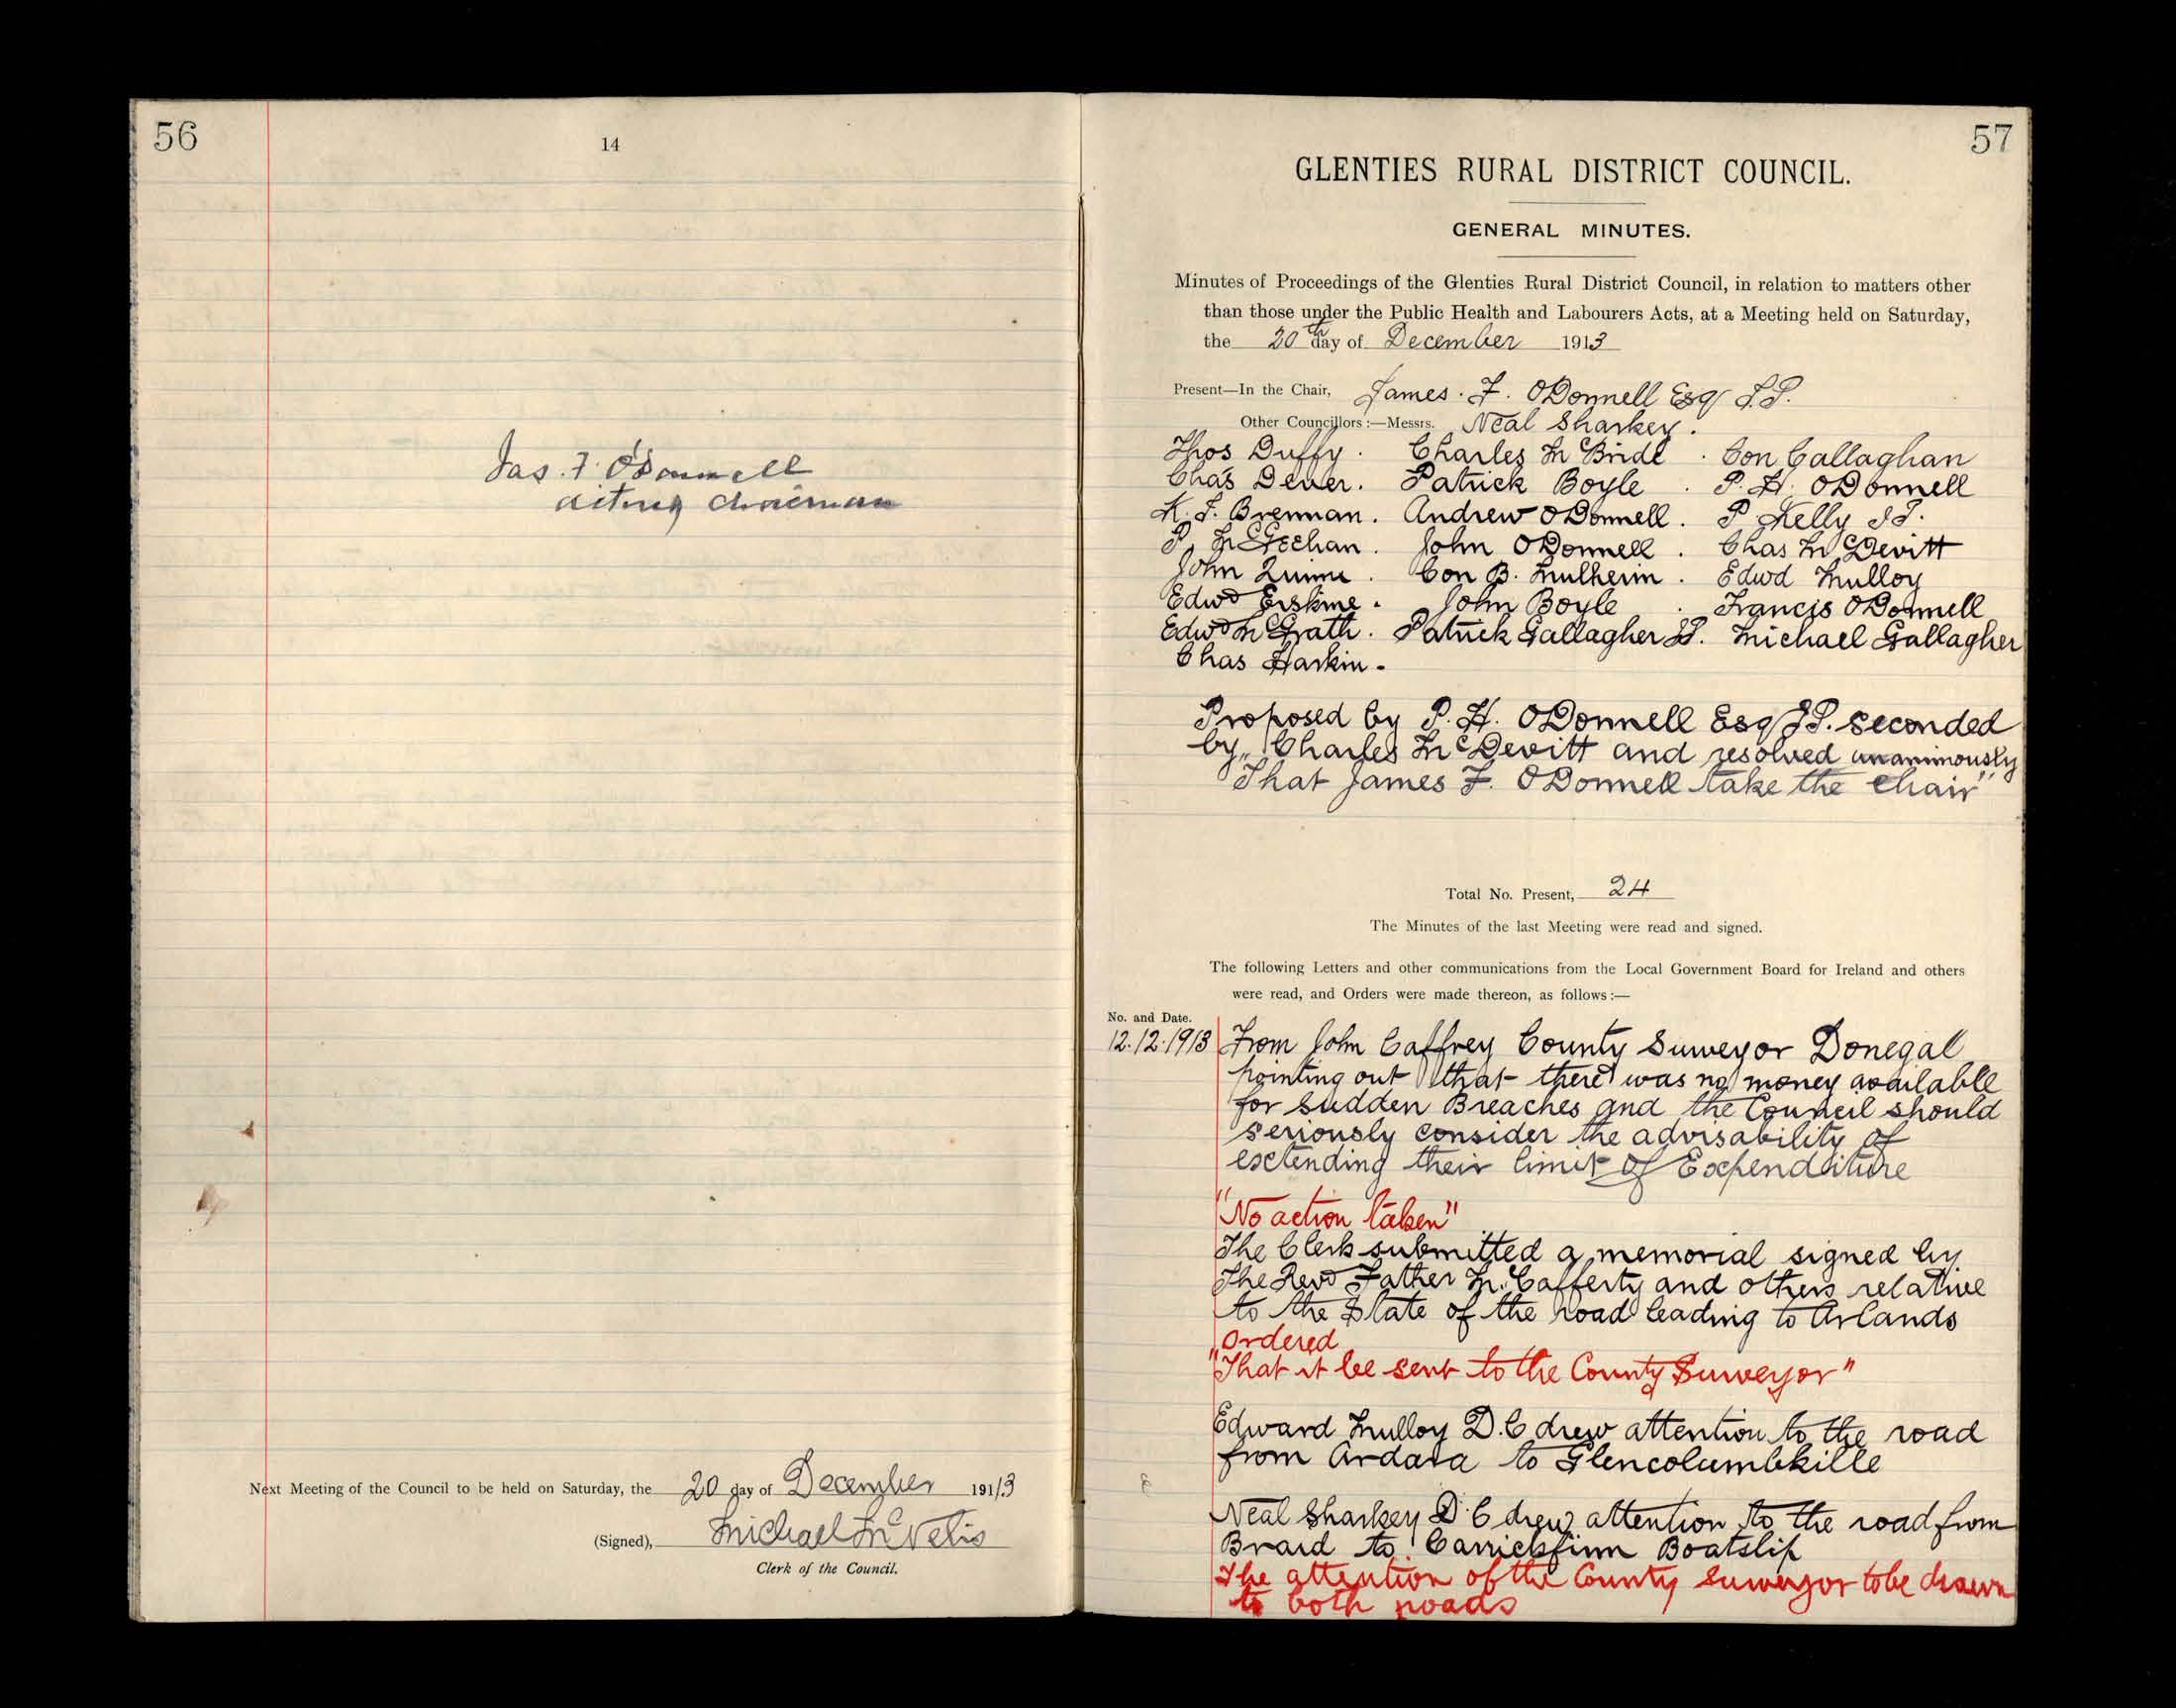 56
14
Jas. F. O'Donnell
acting chairman
Next Meeting of the Council to be held on Saturday, the 20 day of December 1913
(Signed), Michael McNelis
Clerk of the Council.
57
GLENTIES RURAL DISTRICT COUNCIL.
GENERAL MINUTES.
Minutes of Proceedings of the Glenties Rural District Council, in relation to matters other
than those under the Public Health and Labourers Acts, at a Meeting held on Saturday,
the 20th day of December 1913
Present—In the Chair, James. F. ODonnell Esq J.P.
Other Councillors:—Messrs. Neal Sharkey.
Thos Duffy. Charles McBride. Con Callaghan
Chas Dever. Patrick Boyle. P. H. ODonnell
J. Brennan. Andrew ODonnell. P Kelly JP.
P. McGeehan. John ODonnell. Chas McDevitt
John Quinn. Con B. Mulhern. Edwd Mulloy
Edwd Erskine. John Boyle. Francis ODonnell
Edwd McGrath. Patrick Gallagher JP. Michael Gallagher
Chas Harkin.
Proposed by P. H. ODonnell Esq JP. seconded
by Charles McDevitt and resolved unanimously
"That James F. ODonnell take the Chair"
Total No. Present, 24
The Minutes of the last Meeting were read and signed.
The following Letters and other communications from the Local Government Board for Ireland and others
were read, and Orders were made thereon, as follows:—
No. and Date.
12.12.1913 From John Caffrey County Surveyor Donegal
pointing out that there was no money available
for sudden Breaches and the Council should
seriously consider the advisability of
extending their limit of Expenditure
"No action taken"
The Clerk submitted a memorial signed by
The Revd Father McCafferty and others relative
to the state of the road leading to Arlands
Ordered
"That it be sent to the County Surveyor"
Edward Mulloy D.C drew attention to the road
from Ardara to Glencolumbkille
Neal Sharkey D.C drew attention to the road from
Braid to Carrickfinn Boatslip
The attention of the County Surveyor to be drawn
to both roads